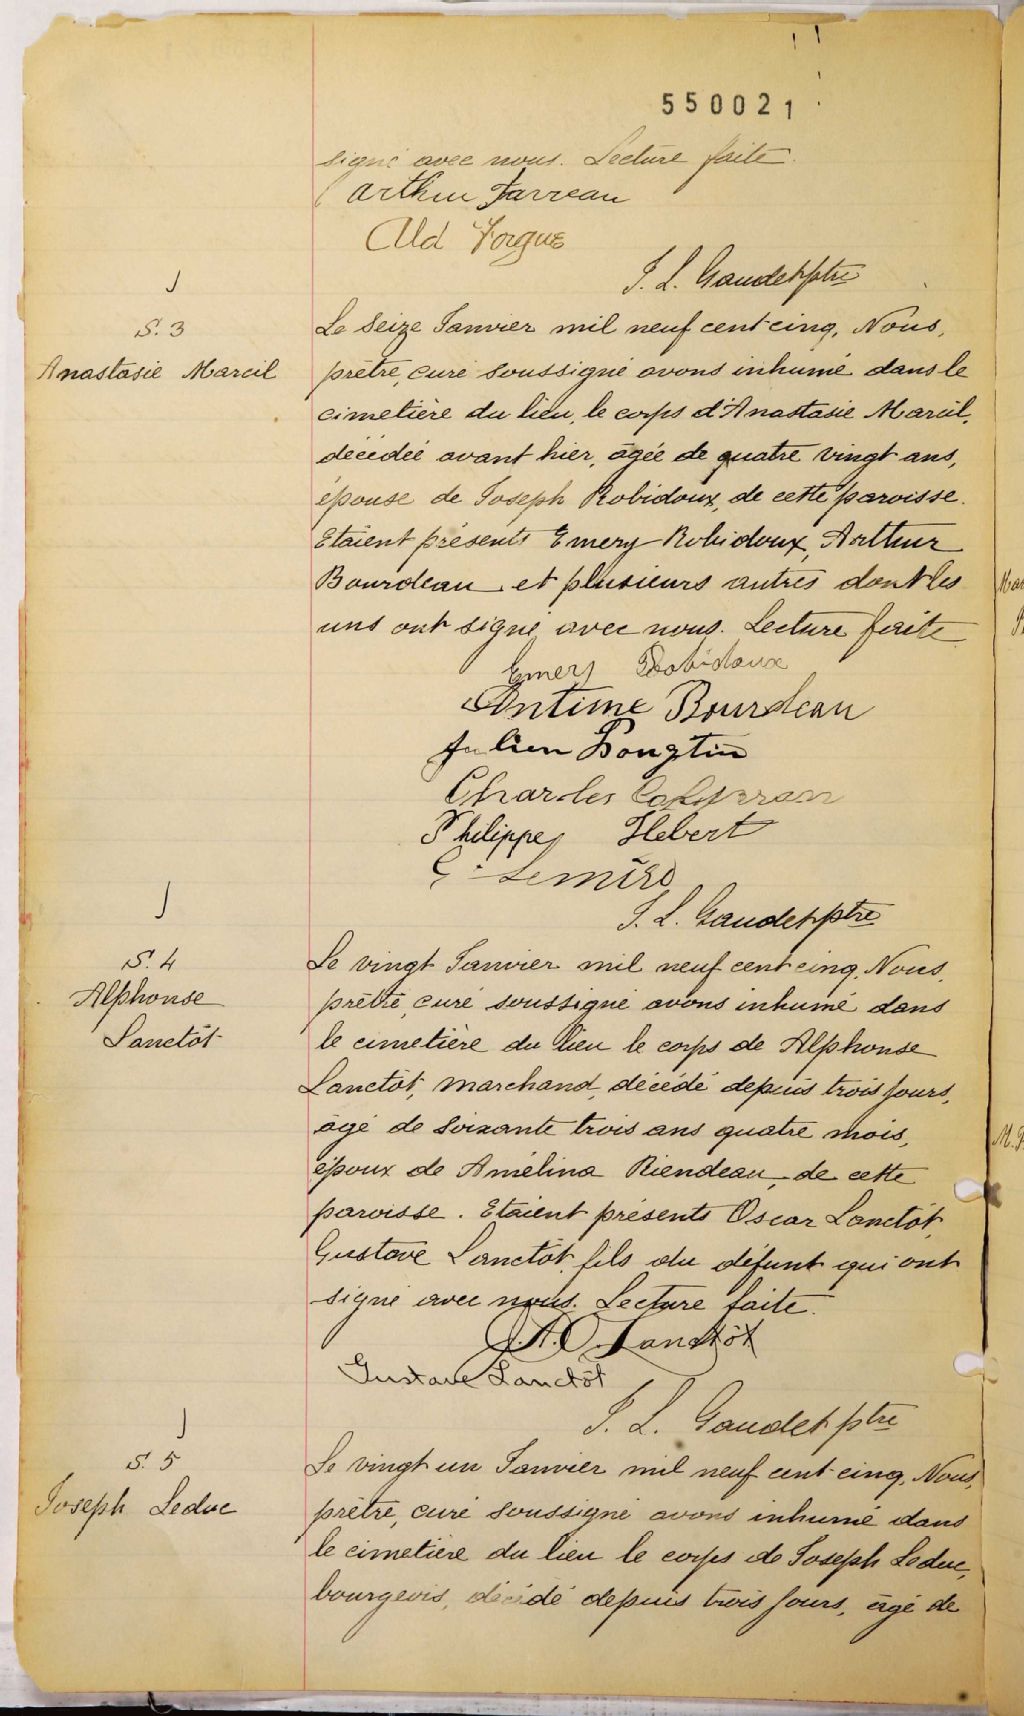 550021
signé avec nous. Lecture faite.
Arthur Farreau
Ald Forgues
J. L. Gaudet ptre
J
S. 3
Anastasie Marcil
Le Seize Janvier mil neuf cent cinq, Nous,
prêtre, curé soussigné avons inhumé dans le
cimetière du lieu, le corps d'Anastasie Marcil,
décédée avant hier, âgée de quatre vingt ans,
épouse de Joseph Robidoux, de cette paroisse.
Etaient présents Emery Robidoux, Arthur
Bourdeau et plusieurs autres dont les
uns ont signé avec nous. Lecture faite
Emery Robidoux
Antime Bourdeau
Julien Longtin
Charles
Philippe Hebert
J. L. Gaudet ptre
J
S. 4
Alphonse
Lanctôt
Le vingt Janvier mil neuf cent cinq, Nous,
prêtre, curé soussigné avons inhumé dans
le cimetière du lieu le corps de Alphonse
Lanctôt, marchand, décédé depuis trois jours,
âgé de soixante trois ans quatre mois,
époux de Amélina Riendeau, de cette
paroisse. Etaient présents Oscar Lanctôt,
Gustave Lanctôt fils du défunt qui ont
signé avec nous. Lecture faite.
J.A.O. Lanctôt
Gustave Lanctôt
J. L. Gaudet ptre
J
S. 5
Joseph Leduc
Le vingt un Janvier mil neuf cent cinq, Nous,
prêtre, curé soussigné avons inhumé dans
le cimetière du lieu le corps de Joseph Leduc,
bourgeois, décédé depuis trois jours, âgé de